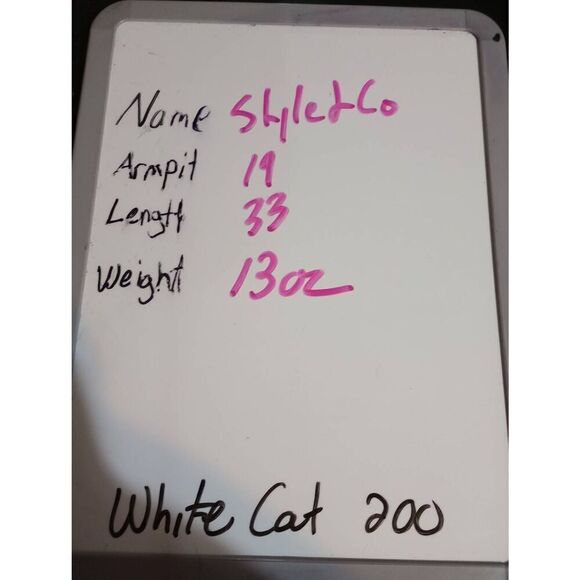 Name Style & Co
Armpit 19
Length 33
Weight 13oz
White Cat 200